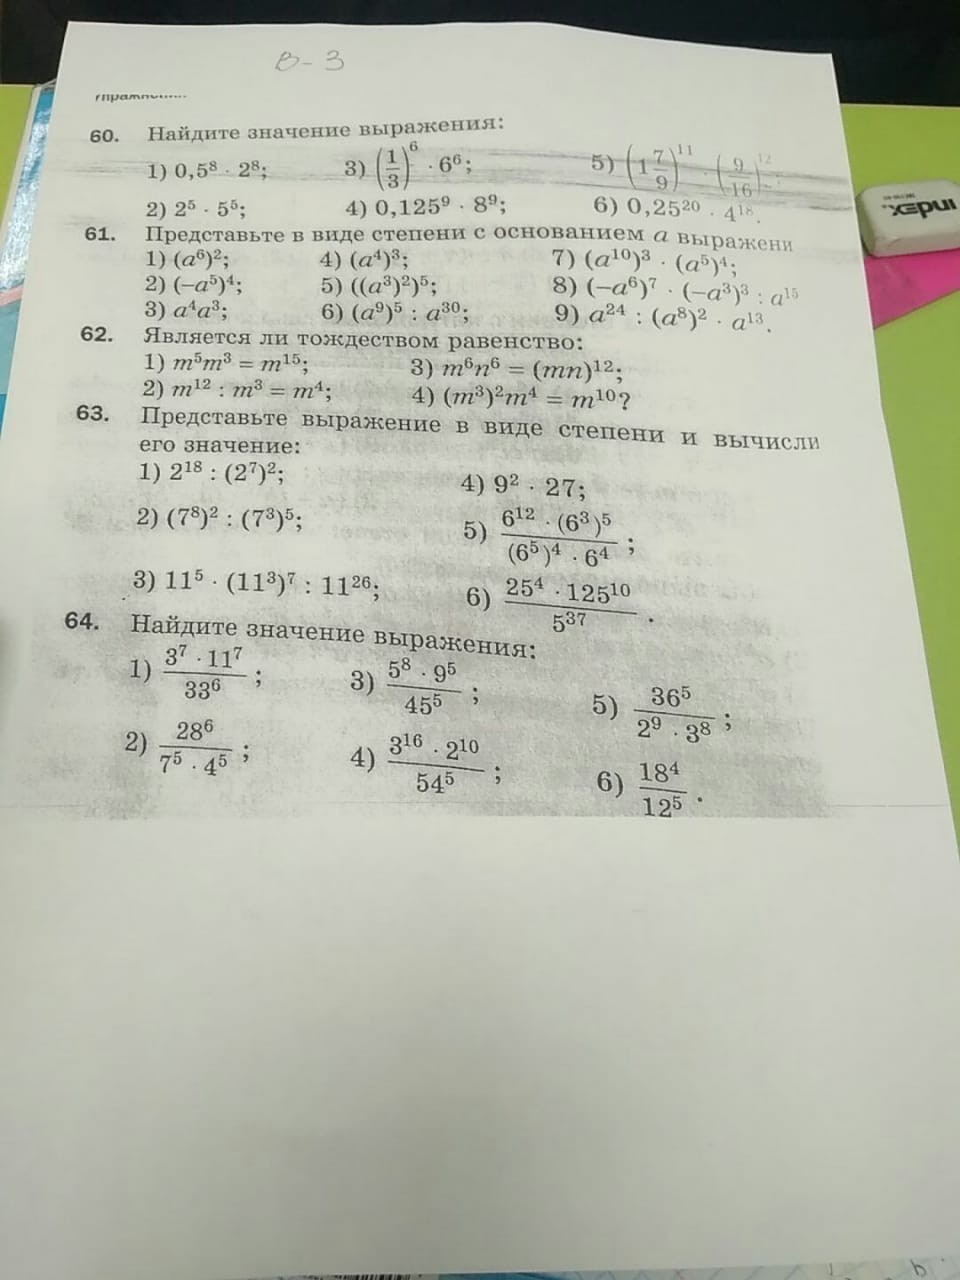 В - 3
60. Найдите значение выражения:
1) 0,5⁸ · 2⁸; 3) (1/3)⁶ · 6⁶; 5) (1 7/9)¹¹ · (9/16)¹²;
2) 2⁵ · 5⁵; 4) 0,125⁹ · 8⁹; 6) 0,25²⁰ · 4¹⁸.
61. Представьте в виде степени с основанием a выражени
1) (a⁶)²; 4) (a⁴)³; 7) (a¹⁰)³ · (a⁵)⁴;
2) (−a⁵)⁴; 5) ((a³)²)⁵; 8) (−a⁶)⁷ · (−a³)³ : a¹⁵
3) a⁴a³; 6) (a⁹)⁵ : a³⁰; 9) a²⁴ : (a⁸)² · a¹³.
62. Является ли тождеством равенство:
1) m⁵m³ = m¹⁵; 3) m⁶n⁶ = (mn)¹²;
2) m¹² : m³ = m⁴; 4) (m³)²m⁴ = m¹⁰?
63. Представьте выражение в виде степени и вычисли
его значение:
1) 2¹⁸ : (2⁷)²; 4) 9² · 27;
2) (7⁸)² : (7³)⁵; 5) (6¹² · (6³)⁵)/((6⁵)⁴ · 6⁴);
3) 11⁵ · (11³)⁷ : 11²⁶; 6) (25⁴ · 125¹⁰)/5³⁷.
64. Найдите значение выражения:
1) (3⁷ · 11⁷)/33⁶; 3) (5⁸ · 9⁵)/45⁵; 5) 36⁵/(2⁹ · 3⁸);
2) 28⁶/(7⁵ · 4⁵); 4) (3¹⁶ · 2¹⁰)/54⁵; 6) 18⁴/12⁵.
index.